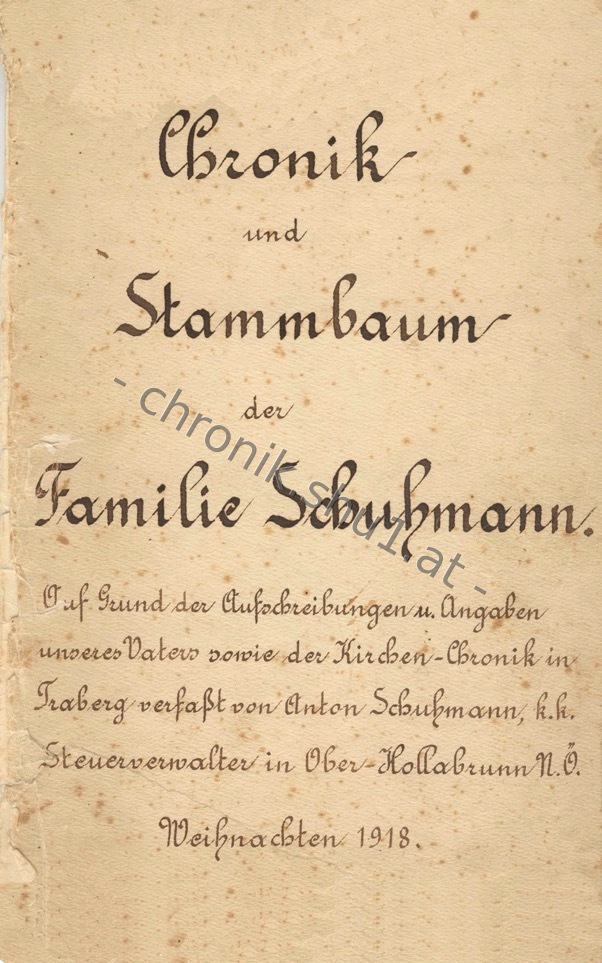 Chronik
und
Stammbaum
der
- chronik.shu1.at -
Familie Schuhmann.
Auf Grund der Aufschreibungen u. Angaben
unseres Vaters sowie der Kirchen-Chronik in
Traberg verfaßt von Anton Schuhmann, k.k.
Steuerverwalter in Ober-Hollabrunn N.Ö.
Weihnachten 1918.